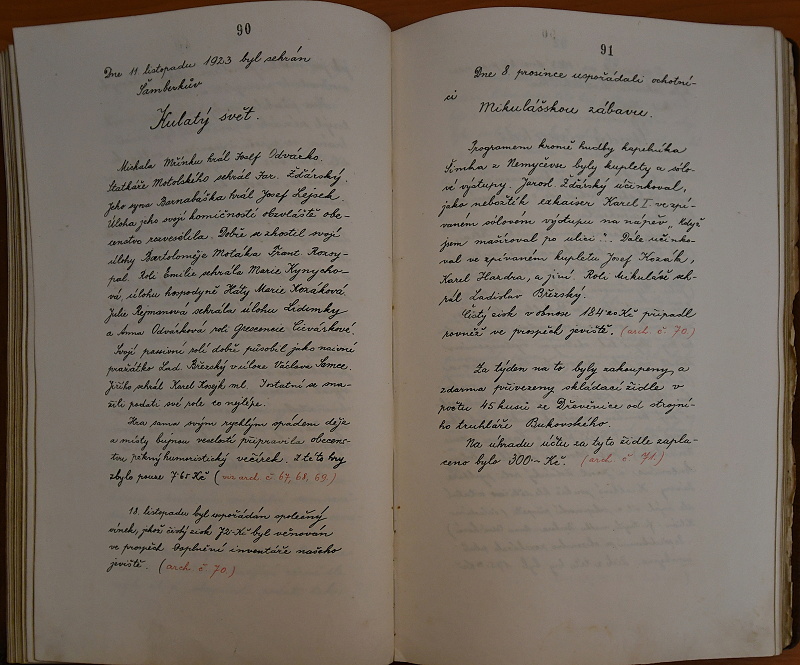 90
Dne 11 listopadu 1923 byl sehrán
Šamberkův
Kulatý svět.
Michala Mřínku hrál Josef Odvárko.
Statkáře Motolského sehrál Jar. Žďárský.
Jeho syna Barnabáška hrál Josef Hejsek.
Úloha jeho svojí komičností obzvláště obe-
censtvo rozveselila. Dobře se zhostil svojí
úlohy Bartoloměje Moláka Frant. Rozsy-
pal. Roli Emilie sehrála Marie Kynycho-
vá, úlohu hospodyně Káty Marie Kozáková.
Julie Rejmanová sehrála úlohu Lidunky
a Anna Odvárková roli Cicvárkové.
Svojí passivní rolí dobře působil jako naivní
Lad. Březský v úloze Václava Samce.
Jiřího sehrál Karel Kozák ml. I ostatní se sna-
žili podati své role co nejlépe.
Hra sama svým rychlým spádem děje
a místy bujnou veselostí připravila obecens-
tvu pěkný humoristický večírek. Z této hry
zbylo pouze 765 Kč (viz arch č. 67, 68, 69.)
18. listopadu byl uspořádán společný
věnek, jehož čistý zisk 72 Kč byl věnován
ve prospěch doplnění inventáře našeho
jeviště. (arch. č. 70.)
91
Dne 8 prosince uspořádali ochotní-
ci
Mikulášskou zábavu.
Programem kromě hudby kapelníka
Šimka z Nemyčevse byly kuplety a sólo-
vé výstupy. Jarosl. Žďárský účinkoval,
jako nebožtík excaiser Karel I. ve zpí-
vaném sólovém výstupu na nápěv „Když
jsem mašíroval po ulici“.. Dále účinko-
val ve zpívaném kupletu Josef Kozák,
Karel Hazdra, a jiní. Roli Mikuláše seh-
rál Ladislav Březský.
Čistý zisk v obnose 184·20 Kč připadl
rovněž ve prospěch jeviště. (arch. č. 70.)
Za týden na to byly zakoupeny a
zdarma přivezeny skládací židle v
počtu 45 kusů ze Dřevěnice od strojní-
ho truhláře Bukovského.
Na úhradu účtu za tyto židle zapla-
ceno bylo 300·– Kč. (arch. č. 71.)